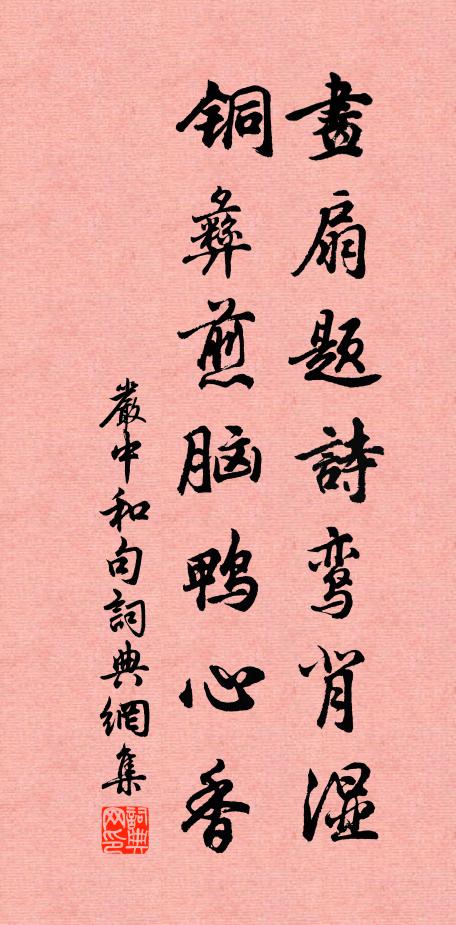 畫扇題詩鸾背湿
铜彝煎脑鸭心香
嚴中和句詞典網集
詞典网印